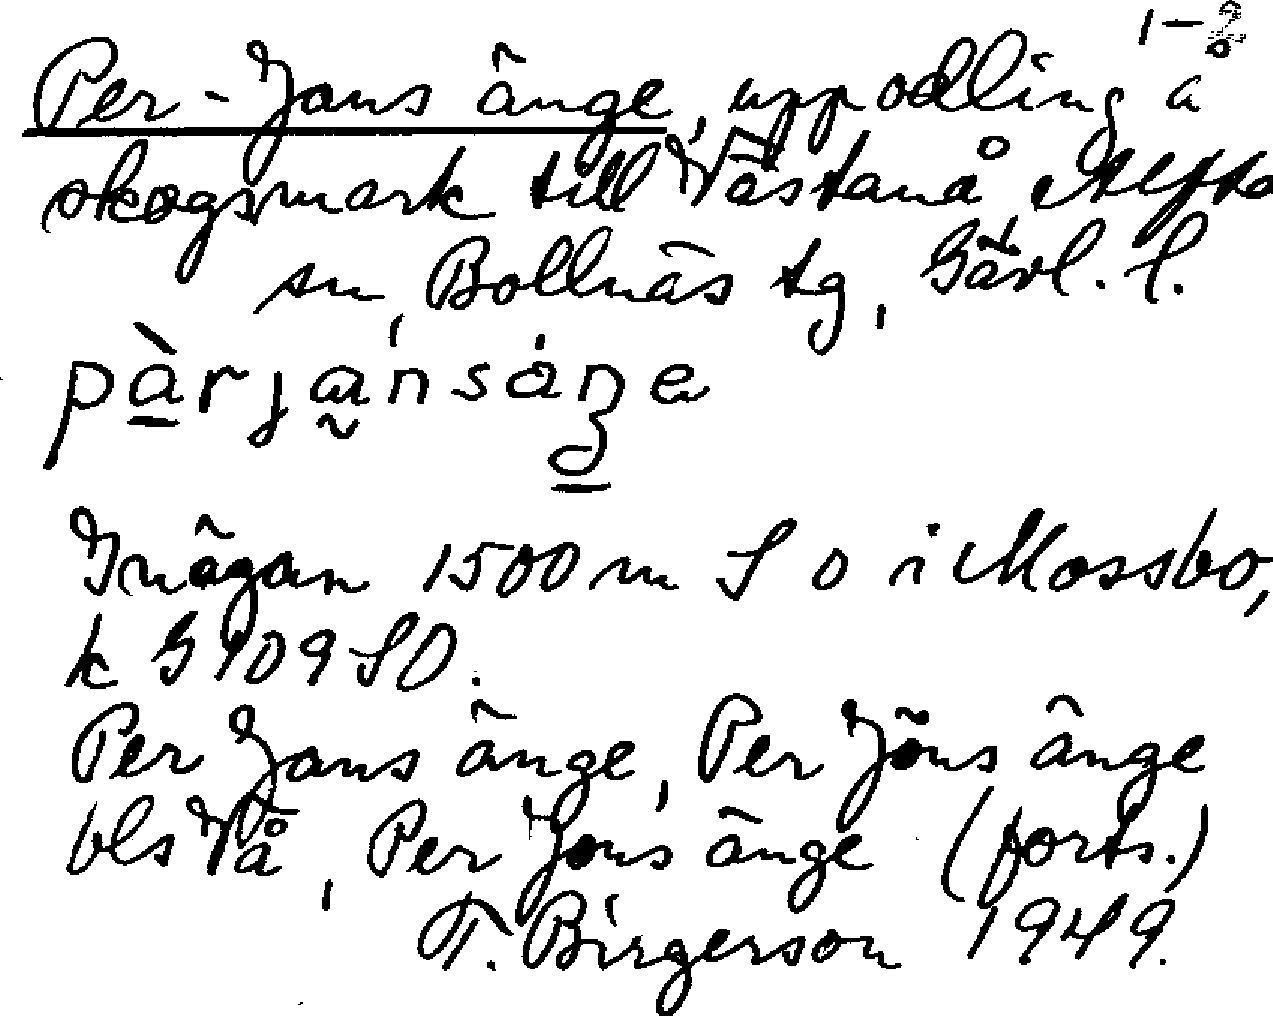 1-2
Per-Jans änge, uppodling å
skogsmark till Västanå Alfta
sn, Bollnäs tg, Gävl. l.
pàrjánsáŋe
Inägan 1500 m S o i Mossbo,
k G 109 SO.
Per Jans änge, Per Jöns änge
bls Vå, Per Jons änge (forts.)
T. Birgerson 1949.